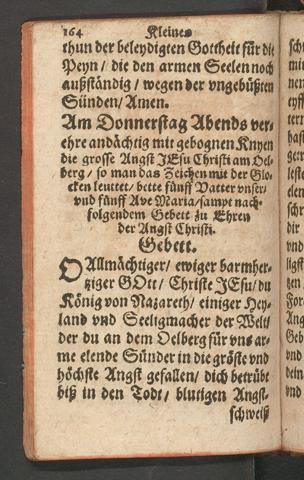 164 Kleines
thun der beleydigten Gottheit für die
Peyn / die den armen Seelen noch
außständig / wegen der vngebüßten
Sünden / Amen.
Am Donnerstag Abends ver-
ehre andächtig mit gebognen Knyen
die grosse Angst JEsu Christi am Oel-
berg / so man das Zeichen mit der Glo-
cken leuttet / bette fünff Vatter vnser /
vnd fünff Ave Maria / sampt nach-
folgendem Gebett zu Ehren
der Angst Christi.
Gebett.
O Allmächtiger / ewiger barmher-
tziger GOtt / Christe JEsu / du
König von Nazareth / einiger Hey-
land vnd Seeligmacher der Welt /
der du an dem Oelberg für vns ar-
me elende Sünder in die gröste vnd
höchste Angst gefallen / dich betrübt
biß in den Todt / blutigen Angst-
schweiß